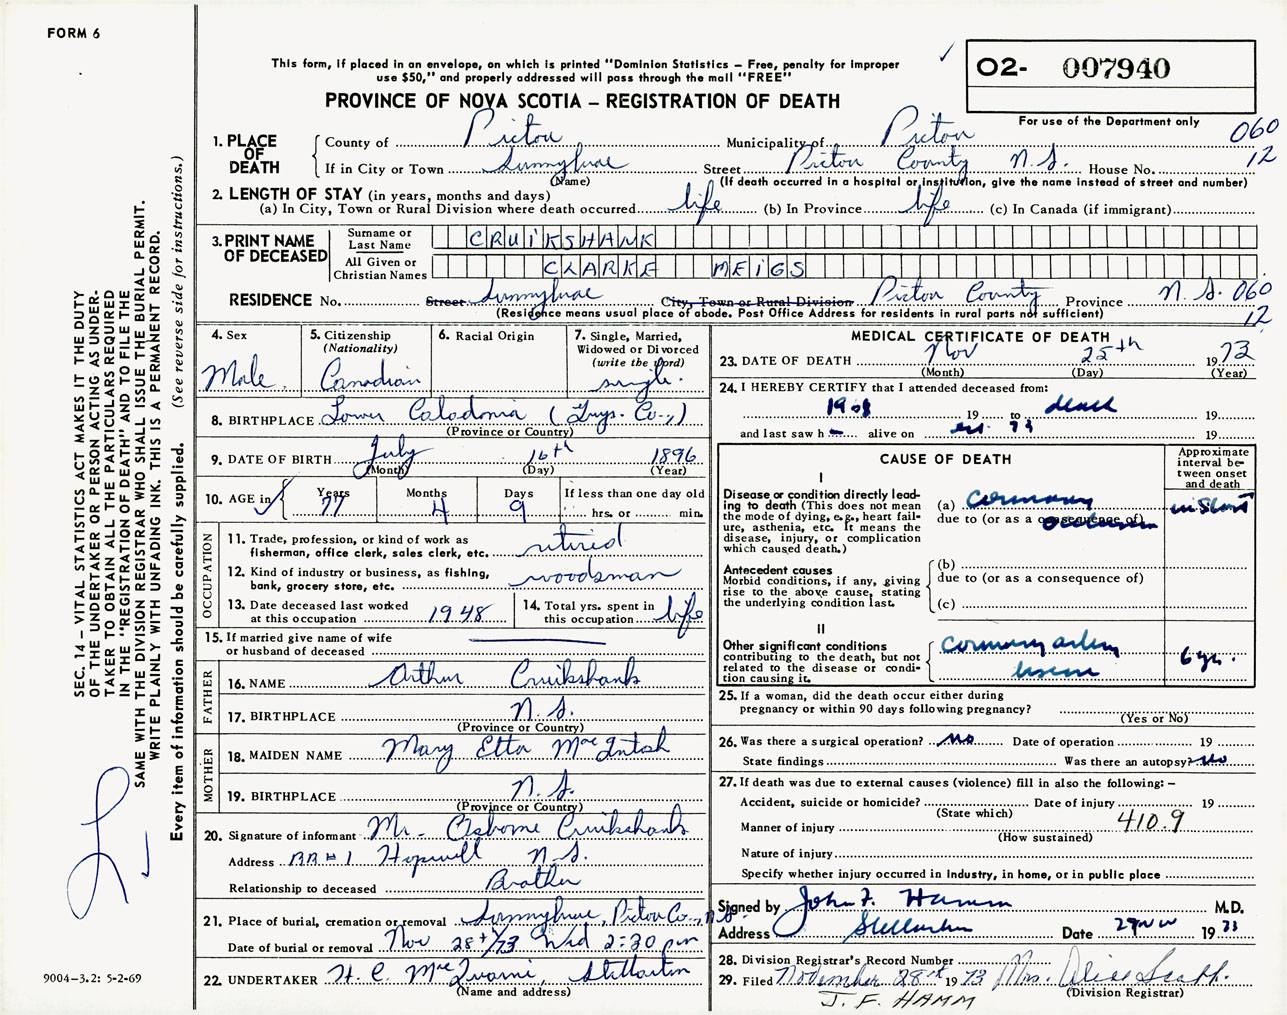 FORM 6
This form, if placed in an envelope, on which is printed "Dominion Statistics – Free, penalty for improper
use $50," and properly addressed will pass through the mail "FREE"
PROVINCE OF NOVA SCOTIA – REGISTRATION OF DEATH
✓
O2- 007940
For use of the Department only
060
12
1. PLACE OF DEATH
County of Pictou Municipality of Pictou
If in City or Town Sunnybrae Street Pictou County N.S. House No.
(Name) (If death occurred in a hospital or institution, give the name instead of street and number)
2. LENGTH OF STAY (in years, months and days)
(a) In City, Town or Rural Division where death occurred life (b) In Province life (c) In Canada (if immigrant)
3. PRINT NAME OF DECEASED
Surname or Last Name CRUIKSHANK
All Given or Christian Names CLARKE MEIGS
RESIDENCE No. Street Sunnybrae City, Town or Rural Division Pictou County Province N.S. 060
(Residence means usual place of abode. Post Office Address for residents in rural parts not sufficient) 12
4. Sex
Male
5. Citizenship
(Nationality)
Canadian
6. Racial Origin
7. Single, Married,
Widowed or Divorced
(write the word)
single.
8. BIRTHPLACE Lower Caledonia (Guys. Co.,)
(Province or Country)
9. DATE OF BIRTH July 16th 1896
(Month) (Day) (Year)
10. AGE in Years 77 Months 4 Days 9 If less than one day old
hrs. or min.
OCCUPATION
11. Trade, profession, or kind of work as
fisherman, office clerk, sales clerk, etc. retired
12. Kind of industry or business, as fishing,
bank, grocery store, etc. woodsman
13. Date deceased last worked
at this occupation 1948
14. Total yrs. spent in
this occupation life
15. If married give name of wife
or husband of deceased
FATHER
16. NAME Arthur Cruikshank
17. BIRTHPLACE N.S.
(Province or Country)
MOTHER
18. MAIDEN NAME Mary Etta MacIntosh
19. BIRTHPLACE N.S.
(Province or Country)
20. Signature of informant Mr. Osborne Cruikshank
Address RR#1 Hopewell N.S.
Relationship to deceased Brother
21. Place of burial, cremation or removal Sunnybrae, Pictou Co., N.S.
Date of burial or removal Nov 28th/73 Wed 2:30 pm
22. UNDERTAKER H. C. Stellarton
(Name and address)
MEDICAL CERTIFICATE OF DEATH
23. DATE OF DEATH Nov 25th 1973
(Month) (Day) (Year)
24. I HEREBY CERTIFY that I attended deceased from:
19 to death 19
and last saw h alive on 73 19
CAUSE OF DEATH
Approximate
interval be-
tween onset
and death
I
Disease or condition directly lead-
ing to death (This does not mean
the mode of dying, e.g., heart fail-
ure, asthenia, etc. It means the
disease, injury, or complication
which caused death.)
(a) coronary
due to (or as a consequence of) occlusion
instant
Antecedent causes
Morbid conditions, if any, giving
rise to the above cause, stating
the underlying condition last.
(b)
due to (or as a consequence of)
(c)
II
Other significant conditions
contributing to the death, but not
related to the disease or condi-
tion causing it.
coronary artery
disease
6 yr.
25. If a woman, did the death occur either during
pregnancy or within 90 days following pregnancy?
(Yes or No)
26. Was there a surgical operation? no Date of operation 19
State findings Was there an autopsy? no
27. If death was due to external causes (violence) fill in also the following: –
Accident, suicide or homicide? Date of injury 19
(State which)
Manner of injury 410.9
(How sustained)
Nature of injury
Specify whether injury occurred in industry, in home, or in public place
Signed by John F. Hamm M.D.
Address Stellarton Date 27 Nov 1973
28. Division Registrar's Record Number
29. Filed November 28th 1973 Mrs. Alice Scott.
(Division Registrar)
J. F. HAMM
SEC. 14 – VITAL STATISTICS ACT MAKES IT THE DUTY
OF THE UNDERTAKER OR PERSON ACTING AS UNDER-
TAKER TO OBTAIN ALL THE PARTICULARS REQUIRED
IN THE "REGISTRATION OF DEATH" AND TO FILE THE
SAME WITH THE DIVISION REGISTRAR WHO SHALL ISSUE THE BURIAL PERMIT.
WRITE PLAINLY WITH UNFADING INK. THIS IS A PERMANENT RECORD.
Every item of information should be carefully supplied. (See reverse side for instructions.)
9004-3.2: 5-2-69